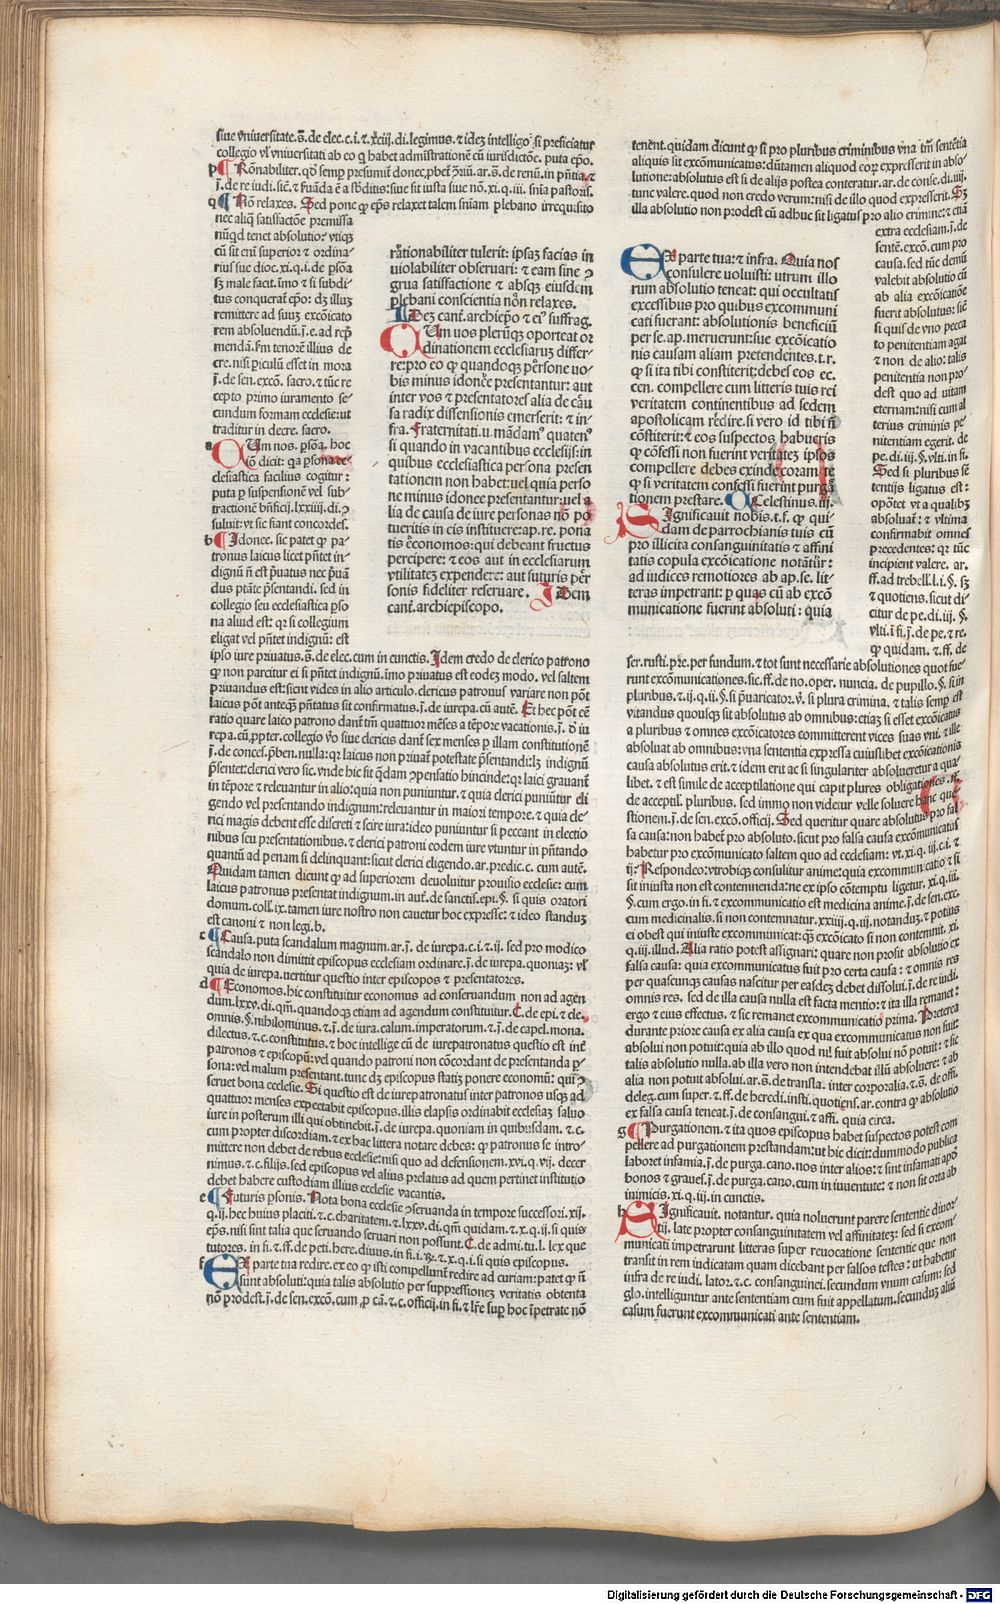 siue vniuersitate. s̄. de elec. c. i. ⁊ xciij. di. legimus. ⁊ idez intelligo si preficiatur
collegio vl' vniuersitati ab eo q habet admistrationē cū iurisdictōe. puta ep̄o.
nec aliq̄ satisfactōe premissa
rem absoluendū. j. e. ad rep̄
cre. nisi piculū esset in mora
j. de sen. excō. sacro. ⁊ tūc re
cepto primo iuramento se-
cundum formam ecclesie: ut
traditur in decre. sacro.
clesiastica facilius cogitur:
puta p suspensionē vel sub
suluit: vt sic fiant concordes.
b Idonee. sic patet q̄ pa-
tronus laicus licet pn̄tet in-
collegio seu ecclesiastica pso
na aliud est: qz si collegium
eligat vel pn̄tet indignū: est
rātionabiliter tulerit: ipsaz facias in
uiolabiliter obseruari: ⁊ eam sine ɔ
grua satisfactione ⁊ absqz eiusdem
plebani conscientia nōn relaxes.
Idez cant. archiep̄o ⁊ ei' suffrag.
Cum uos pleruqz oporteat or
dinationem ecclesiaruz differ-
re: pro eo q̄ quandoqz pērsone uo-
bis minus idonēe presentantur: aut
inter vos ⁊ presentatores alia de cāu
sa radix dissensionis emerserit: ⁊ in-
fra. Fraternitati. u. mādam' quaten'
si quando in vacantibus ecclesijs: in
quibus ecclesiastica persona presen
tationem non habet: uel quia perso
ne minus idonee presentantur: uel a
lia de causa de iure personas nō po
tueritis in eis instituere: ap. re. pona
tis ēconomos: qui debeant fructus
percipere: ⁊ eos aut in ecclesiarum
vtilitatez expendere: aut futuris pēr
sonis fideliter reseruare. Idem
cant. archiepiscopo.
ipso iure priuatus. s̄. de elec. cum in cunctis. Idem credo de clerico patrono
q̄ non parcitur ei si pn̄tet indignū. imo priuatus est eodez modo. vel saltem
priuandus est: sicut vides in alio articulo. clericus patronus variare non pōt
laicus pōt anteqz pn̄tatus sit confirmatus. j. de iurepa. cū autē. Et hec pōt eē
ratio quare laico patrono dant tm̄ quattuor mēses a tēpore vacationis. j. d' iu
repa. cū. ppter. collegio vo siue clericis dant sex menses p illam constitutionē
gendo vel presentando indignum: releuantur in maiori tempore. ⁊ quia de
rici magis debent esse discreti ⁊ scire iura: ideo puniuntur si peccant in electio
nibus seu presentationibus. ⁊ clerici patroni eodem iure vtuntur in pn̄tando
quantū ad penam si delinquant: sicut clerici eligendo. ar. predic. c. cum autē.
Quidam tamen dicunt q̄ ad superiorem deuoluitur prouisio ecclesie: cum
laicus patronus presentat indignum. in aut. de sanctis. epi. §. si quis oratori
domum. coll. ix. tamen iure nostro non cauetur hoc expresse: ⁊ ideo standuz
est canoni ⁊ non legi. b.
c Causa. puta scandalum magnum. ar. j. de iurepa. c. i. ⁊ ij. sed pro modico
scandalo non dimittit episcopus ecclesiam ordinare. j. de iurepa. quoniaz: vl'
quia de iurepa. vertitur questio inter episcopos ⁊ presentatores.
d Economos. hic constituitur economus ad conseruandum non ad agen
dum. lxxv. di. qm̄. quandoqz etiam ad agendum constituitur. C. de epi. ⁊ cle.
omnis. §. nihilominus. ⁊ j. de iura. calum. imperatorum. ⁊ j. de capel. mona.
dilectus. ⁊ c. constitutus. ⁊ hoc intellige cū de iurepatronatus questio est int'
patronos ⁊ episcopū: vel quando patroni non cōcordant de presentanda p-
sona: vel malum presentant. tunc dz episcopus statiz ponere economū: qui ɔ
seruet bona ecclesie. Si questio est de iurepatronatus inter patronos usqz ad
quattuor menses expectabit episcopus. illis elapsis ordinabit ecclesiaz saluo
iure in posterum illi qui obtinebit. j. de iurepa. quoniam in quibusdam. ⁊ c.
cum propter discordiam. ⁊ ex hac littera notare debes: q̄ patronus se intro-
mittere non debet de rebus ecclesie: nisi quo ad defensionem. xvi. q. vij. decer
nimus. ⁊ c. filijs. sed episcopus vel alius prelatus ad quem pertinet institutio
debet habere custodiam illius ecclesie vacantis.
e Futuris psonis. Nota bona ecclesie ɔseruanda in tempore successori. xij.
q. ij. hec huius placiti. ⁊ c. charitatem. ⁊ lxxv. di. qm̄ quidam. ⁊ x. q. ij. si quis
ep̄s. nisi sint talia que seruando seruari non possunt. C. de admi. tu. l. lex que
tutores. in fi. ⁊ ff. de peti. here. diuus. in fi.
f Ex parte tua redire. ex eo q̄ isti compellunt redire ad curiam: patet q̄ n̄
sunt absoluti: quia talis absolutio per suppressionez veritatis obtenta
nō prodest. j. de sen. excō. cum p cā. ⁊ c. officij. in fi. ⁊ lr̄e sup hoc ipetrate nō
tenent. quidam dicunt q̄ si pro pluribus criminibus vna tm̄ sentētia
aliquis sit excōmunicatus: dūtamen aliquod eorz expresserit in abso-
lutione: absolutus est si de alijs postea conteratur. ar. de conse. di. iiij.
tunc valere. quod non credo verum: nisi de illo quod expresserit. Sz
illa absolutio non prodest cū adhuc sit ligatus pro alio crimine: ⁊ etiā
extra ecclesiam. j. de
sentē. excō. cum pro
causa. sed tūc demū
valebit absolutio cū
ab alia excōicatiōe
fuerit absolutus: sic
si quis de vno pecca
to penitentiam agat
⁊ non de alio: talis
penitentia non pro-
dest quo ad uitam
eternam: nisi cum al
terius criminis pe-
nitentiam egerit. de
pe. di. iij. §. vlti. in fi.
Sed si pluribus sē
tentijs ligatus est:
opōtet vt a qualibz
absoluat: ⁊ vltima
confirmabit omnes
precedentes: qz tūc
incipient valere. ar.
ff. ad trebell. l. i. §. sz
⁊ quotiens. sicut di-
citur de pe. di. iij. §.
q̄ quidam. ⁊ ff. de
Ex parte tua: ⁊ infra. Quia nos
consulere uoluisti: utrum illo
rum absolutio teneat: qui occultatis
excessibus pro quibus excommuni
cati fuerant: absolutionis beneficiū
per se. ap. meruerunt: sue excōicatio
nis causam aliam pretendentes. t. r.
q̄ si ita tibi constiterit: debes eos ec.
cen. compellere cum litteris tuis rei
veritatem continentibus ad sedem
apostolicam redire. si vero id tibi n̄
cōstiterit: ⁊ eos suspectos habueris
q̄ cōfessi non fuerint veritatez ipsos
compellere debes exinde coram te
q̄ si veritatem confessi fuerint purga
tionem prestare. Celestinus. iij.
Significauit nobis. t. f. q̄ qui-
dam de parrochianis tuis cū
pro illicita consanguinitatis ⁊ affini
tatis copula excōicatione notātur:
ad iudices remotiores ab ap. se. lit-
teras impetrant: p quas cū ab excō
municatione fuerint absoluti: quia
ser. rusti. pre. per fundum. ⁊ tot sunt necessarie absolutiones quot fue
runt excōmunicationes. sic. ff. de no. oper. nuncia. de pupillo. §. si in
pluribus. ⁊ ij. q. ij. §. si pūaricator. ⁊. si plura crimina. ⁊ talis semp est
vitandus quousqz sit absolutus ab omnibus: etiaz si esset excōicatus
a pluribus ⁊ omnes excōicatores committerent vices suas vni. ⁊ ille
absoluat ab omnibus: vna sententia expressa cuiuslibet excōicationis
causa absolutus erit. ⁊ idem erit ac si singulariter absolueretur a qua
libet. ⁊ est simile de acceptilatione qui capit plures obligationes. ff.
de acceptil. pluribus. sed immo non videtur velle soluere hanc que
stionem. j. de sen. excō. officij. Sed queritur quare absolutus pro fal
sa causa: non habet pro absoluto. sicut pro falsa causa excōmunicatus
habetur pro excōmunicato saltem quo ad ecclesiam: vt. xi. q. iij. c. i. ⁊
ij. Respondeo: vtrobiqz consulitur anime: quia excommunicatio ⁊ si
sit iniusta non est contemnenda: ne ex ipso cōtemptu ligetur. xi. q. iij.
§. cum ergo. in fi. ⁊ excōmunicatio est medicina anime. j. de sen. exc.
cum medicinalis. si non contemnatur. xxiiij. q. iij. notanduz. ⁊ potius
ei obest qui iniuste excommunicat: qz excōicato si non contemnit. xi.
q. iij. illud. Alia ratio potest assignari: quare non prosit absolutio ex
falsa causa: quia excommunicatus fuit pro certa causa: ⁊ omnis res
per quascunqz causas nascitur per easdez debet dissolui. j. de re iudi.
omnis res. sed de illa causa nulla est facta mentio: ⁊ ita illa remanet:
ergo ⁊ eius effectus. ⁊ sic remanet excommunicatio prima. Preterea
durante priore causa ex alia causa ex qua excommunicatus non fuit
absolui non potuit: quia ab illo quod nil' fuit absolui nō potuit: ⁊ sic
talis absolutio nulla. ab illa vero non intendebat illū absoluere: ⁊ ab
alia non potuit absolui. ar. s̄. de transla. inter corporalia. ⁊ s̄. de offi.
deleg. cum super. ⁊ ff. de heredi. insti. quotiens. ar. contra q̄ absolutio
ex falsa causa teneat. j. de consangui. ⁊ affi. quia circa.
g Purgationem. ⁊ ita quos episcopus habet suspectos potest com
pellere ad purgationem prestandam: ut hic dicit: dummodo publica
laboret infamia. j. de purga. cano. nos inter alios: ⁊ sint infamati apō
bonos ⁊ graues. j. de purga. cano. cum in iuuentute: ⁊ non sit orta ab
inimicis. xi. q. iij. in cunctis.
h Significauit. notantur. quia noluerunt parere sententie diuor-
tij. late propter consanguinitatem vel affinitatez: sed si excom-
municati impetrarunt litteras super reuocatione sententie que non
transit in rem iudicatam quam dicebant per falsos testes: ut habetur
infra de re iudi. lator. ⁊ c. consanguinei. secundum vnum casum: sed
glo. intelliguntur ante sententiam cum fuit appellatum. secunduz aliū
casum fuerunt excommunicati ante sententiam.
Digitalisierung gefördert durch die Deutsche Forschungsgemeinschaft - DFG